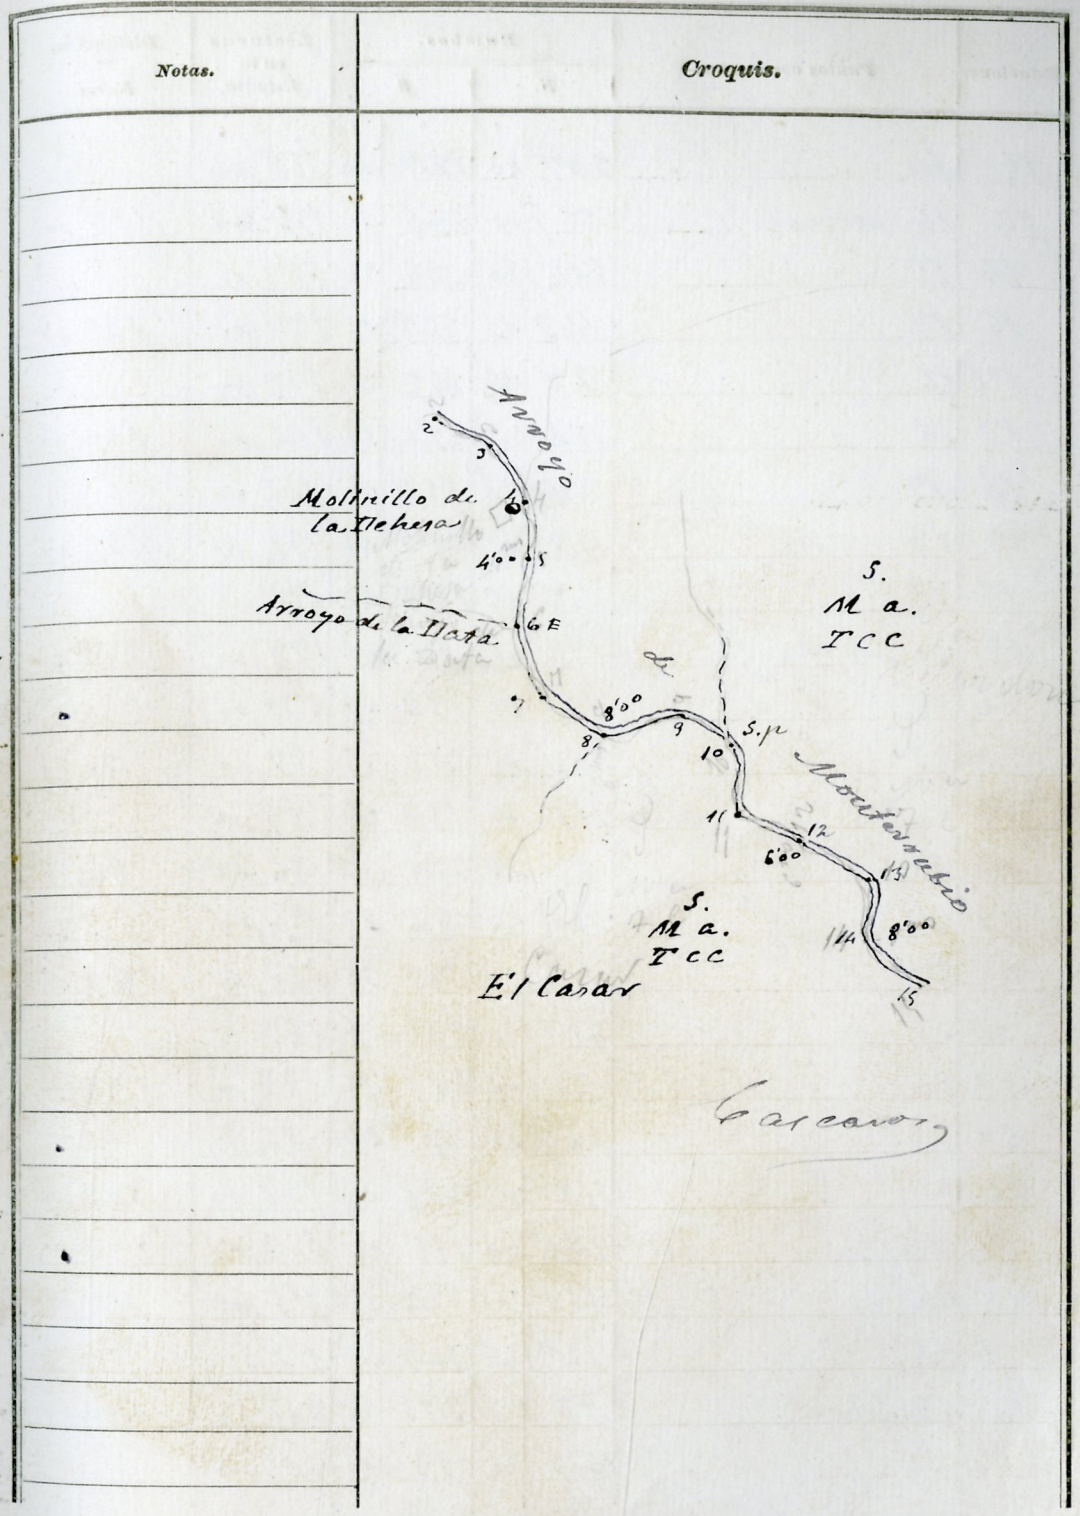 Notas.
Croquis.
Arroyo
2
3
Molinillo de
la Dehesa
4
4'00
5
Arroyo de la Data
6 E
7
8
8'00
de
9
10
S.p
11
Monterrubio
12
6'00
13
14
8'00
15
S.
M a.
T C C
S.
M a.
T C C
El Casar